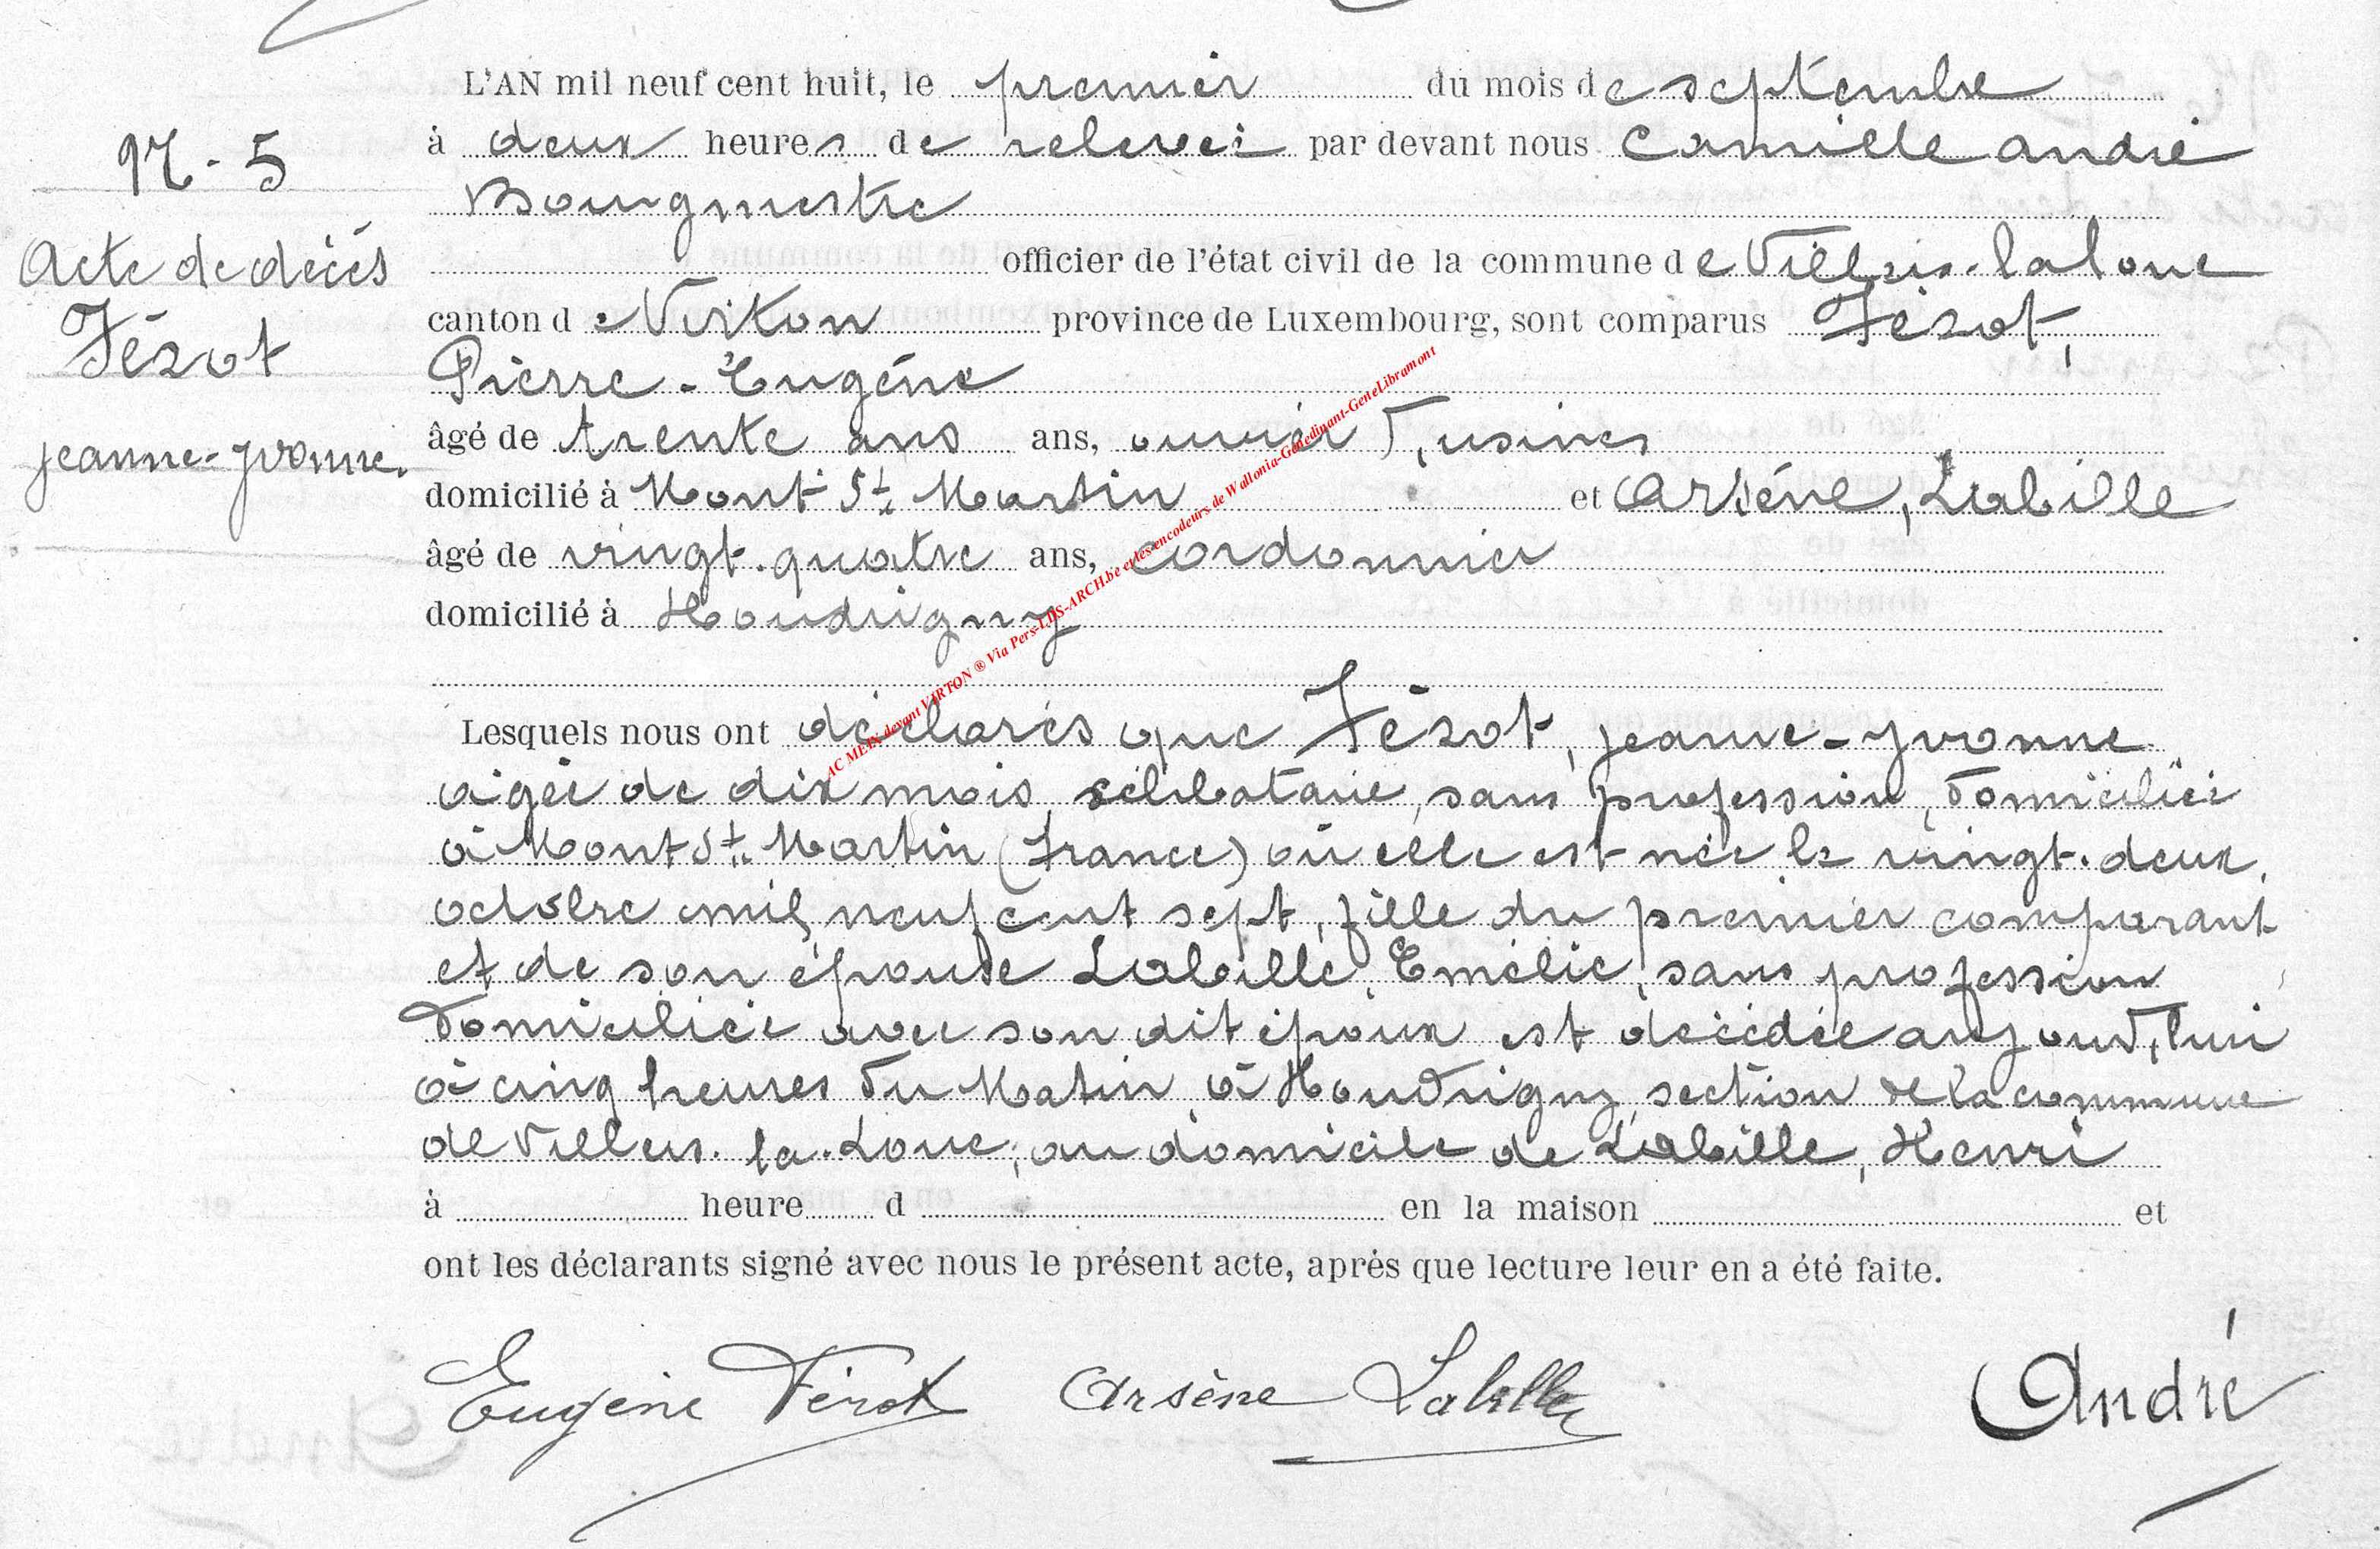 L'AN mil neuf cent huit, le premier du mois de septembre
à deux heures de relevée par devant nous Camille André
Bourgmestre
officier de l'état civil de la commune de Villers-la loue
canton de Virton province de Luxembourg, sont comparus Fézot,
Pierre-Eugène
âgé de trente ans ans, ouvrier d'usines
domicilié à Mont St Martin et Arsène, Labille
âgé de vingt-quatre ans, cordonnier
domicilié à Houdrigny
N° 5
Acte de décès
Fézot
jeanne-yvonne.
Lesquels nous ont déclarés que Fézot, jeanne-yvonne
âgée de dix mois, célibataire, sans profession, domiciliée
à Mont St. Martin (France) où elle est née le vingt-deux
octobre mil neuf cent sept, fille du premier comparant
et de son épouse Labille, Emélie, sans profession
domiciliée avec son dit époux est décédée aujourd'hui
à cinq heures du Matin, à Houdrigny, section de la commune
de Villers-la-Loue, au domicile de Labille, Henri
à heure d en la maison et
ont les déclarants signé avec nous le présent acte, après que lecture leur en a été faite.
Eugène Fézot Arsène Labille André
AC MEIX devant VIRTON ® Via Pers-LDS-ARCH.be et les encodeurs de Wallonia-Genedinant-GeneLibramont